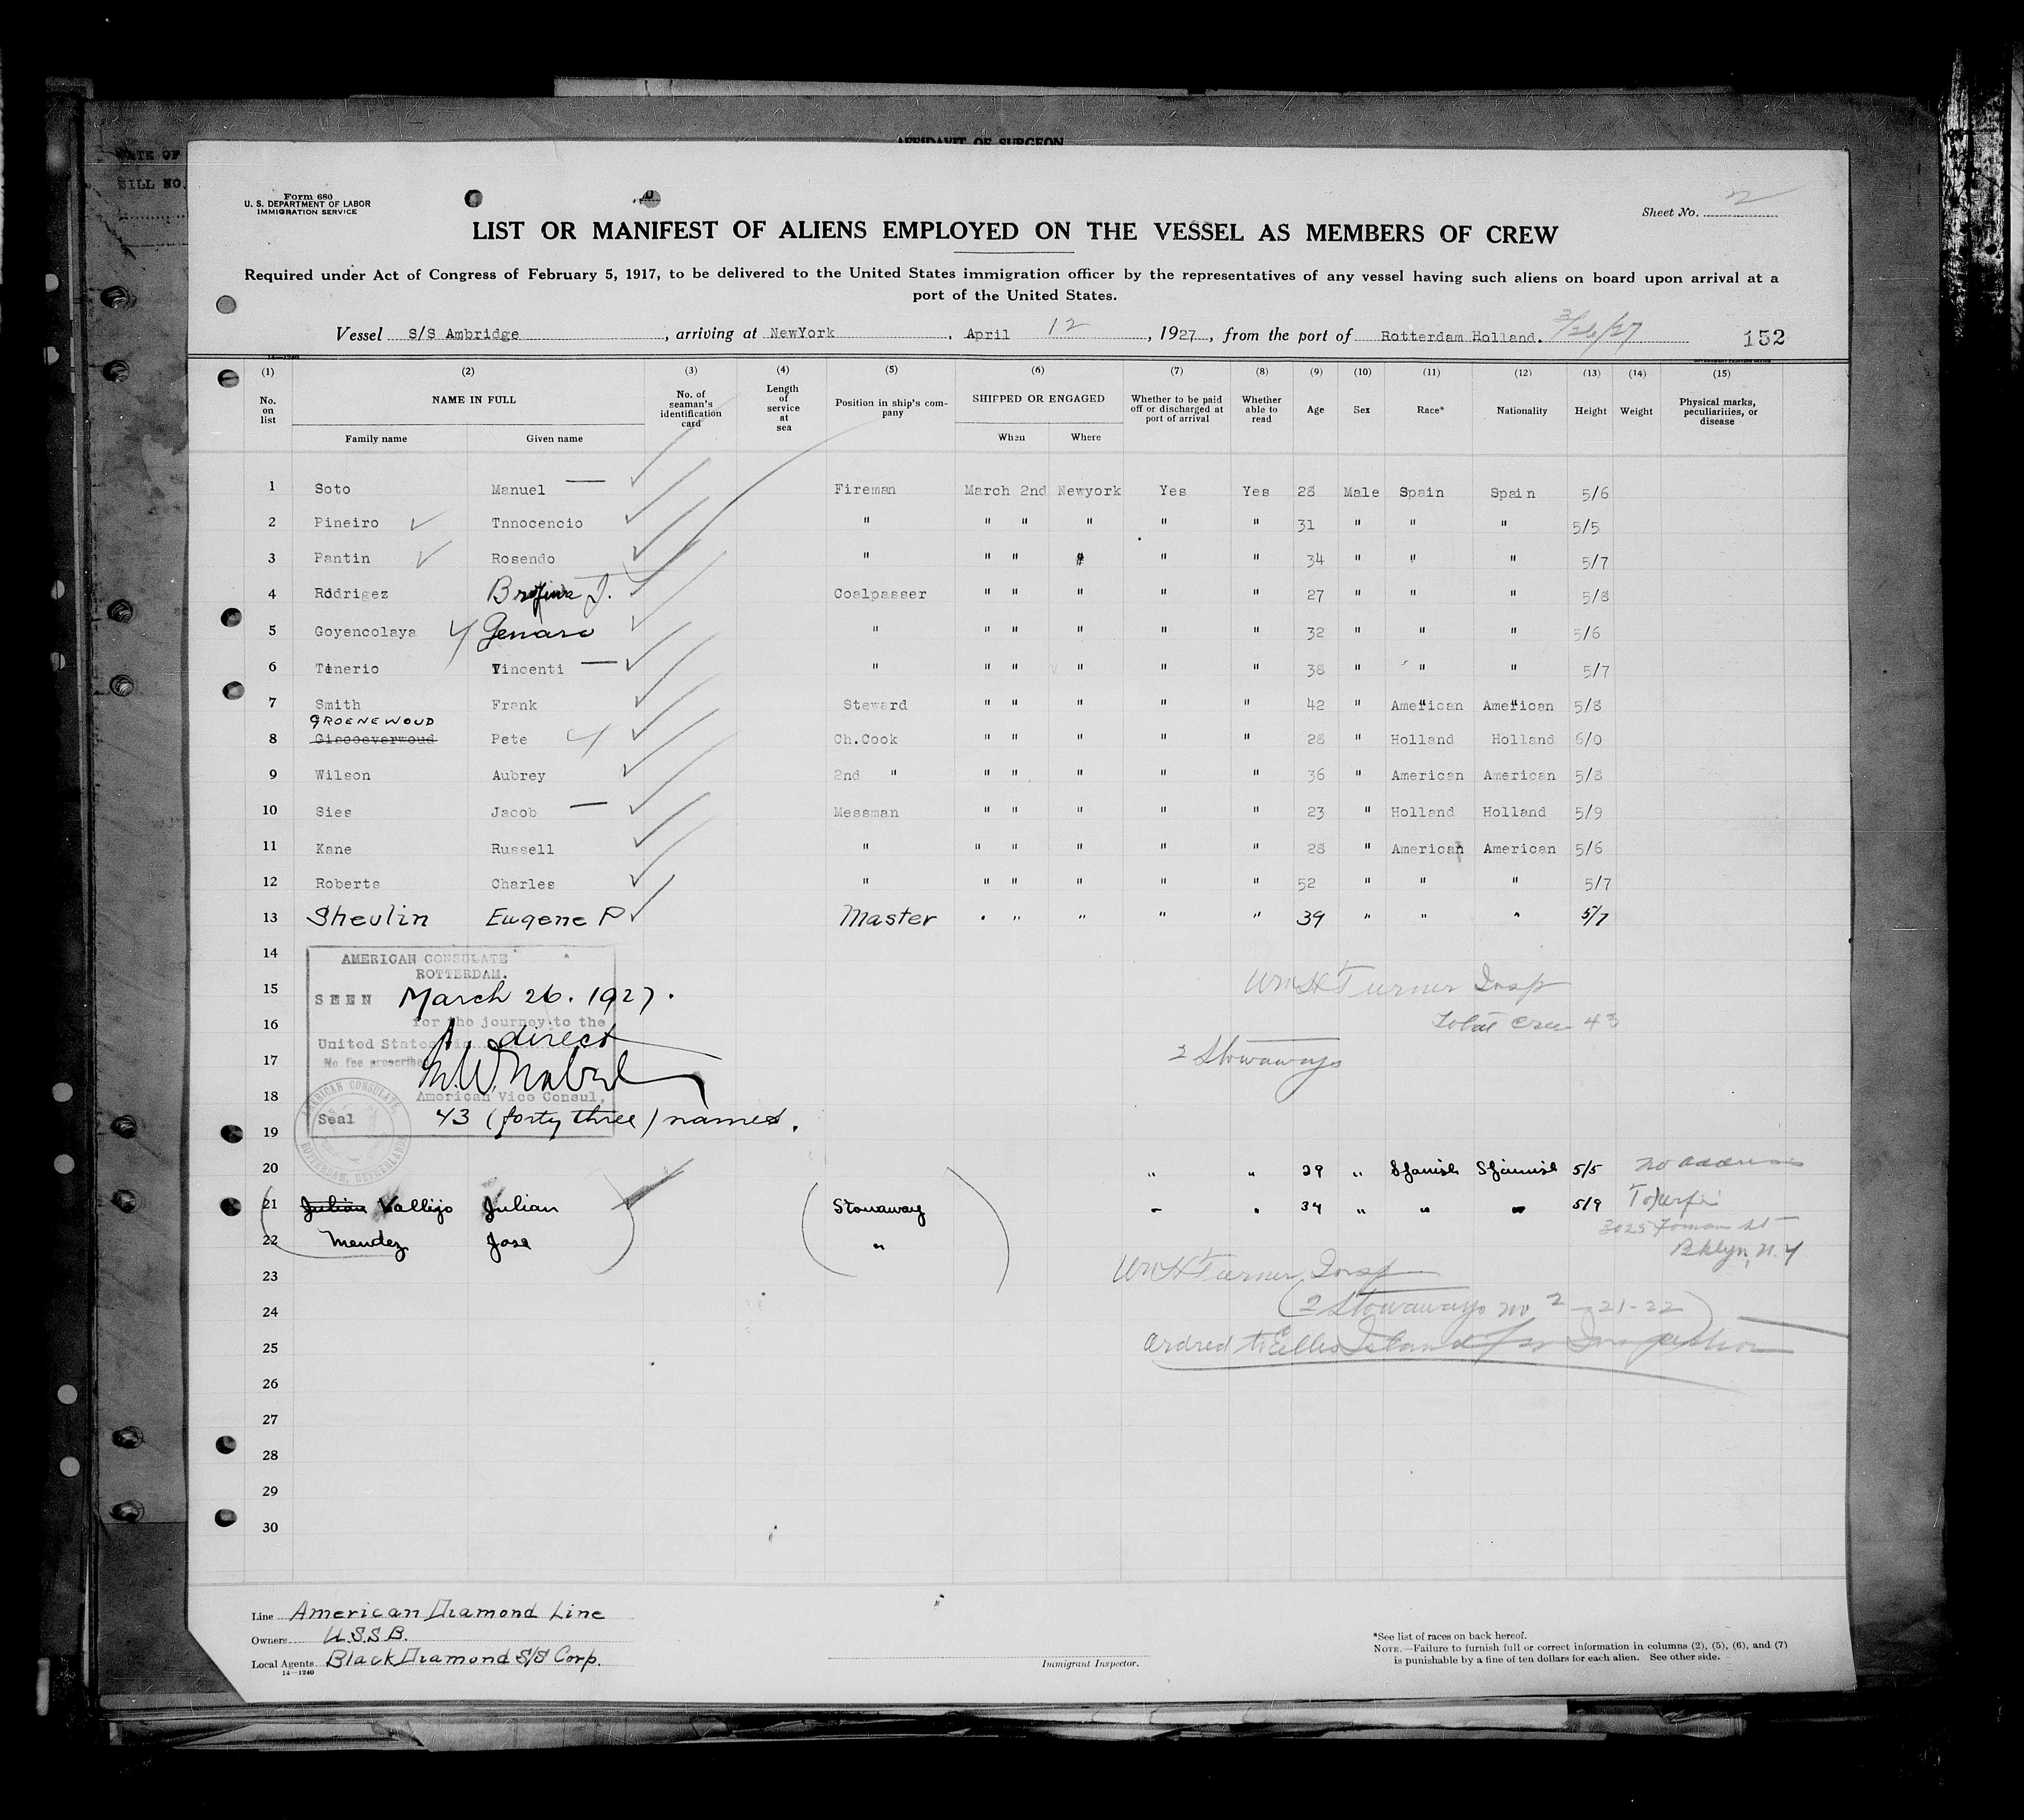 AFFIDAVIT OF SURGEON
BILL NO.
Form 680
U. S. DEPARTMENT OF LABOR
IMMIGRATION SERVICE
Sheet No. 2
LIST OR MANIFEST OF ALIENS EMPLOYED ON THE VESSEL AS MEMBERS OF CREW
Required under Act of Congress of February 5, 1917, to be delivered to the United States immigration officer by the representatives of any vessel having such aliens on board upon arrival at a
port of the United States.
Vessel S/S Ambridge, arriving at NewYork, April 12, 1927, from the port of Rotterdam Holland. 3/26/27 152
(1) (2) (3) (4) (5) (6) (7) (8) (9) (10) (11) (12) (13) (14) (15)
No. on list NAME IN FULL Family name Given name No. of seaman's identification card Length of service at sea Position in ship's company SHIPPED OR ENGAGED When Where Whether to be paid off or discharged at port of arrival Whether able to read Age Sex Race* Nationality Height Weight Physical marks, peculiarities, or disease
1 Soto Manuel — Fireman March 2nd Newyork Yes Yes 28 Male Spain Spain 5/6
2 Pineiro Tnnocencio " " " " " " 31 " " " 5/5
3 Pantin Rosendo " " " " " " 34 " " " 5/7
4 Rodrigez J. Coalpasser " " " " " 27 " " " 5/8
5 Goyencolaya Genaro " " " " " " 32 " " " 5/6
6 Tenerio Vincenti — " " " " " " 38 " " " 5/7
7 Smith Frank Steward " " " " " 42 " American American 5/8
GROENEWOUD
8 Giacoeverwoud Pete Ch.Cook " " " " " 28 " Holland Holland 6/0
9 Wilson Aubrey 2nd " " " " " " 36 " American American 5/8
10 Sies Jacob — Messman " " " " " 23 " Holland Holland 5/9
11 Kane Russell " " " " " " 28 " American American 5/6
12 Roberts Charles " " " " " " 52 " " " 5/7
13 Shevlin Eugene P Master " " " " " 39 " " " 5/7
14 AMERICAN CONSULATE
ROTTERDAM.
15 SEEN March 26. 1927. Wm H Turner Insp
16 for the journey to the Total Crew 43
United States via direct
17 No fee prescribed 2 Stowaways
18 American Vice Consul,
Seal 43 (forty three) names.
AMERICAN CONSULATE ROTTERDAM, NETHERLANDS
19
20 " " 29 " Spanish Spanish 5/5 no address
21 Julian Vallijo Julian Stowaway " " 34 " " " 5/9
3025 St
22 Mendez Jose " Bklyn, N.Y
23 Wm H Turner Insp
24 (2 Stowaways no 2 — 21-22)
25 ordred to Ellis Island for Inspection
26
27
28
29
30
Line American Diamond Line
Owners U.S.S.B.
Local Agents Black Diamond S/S Corp.
14—1240
Immigrant Inspector.
*See list of races on back hereof.
NOTE.—Failure to furnish full or correct information in columns (2), (5), (6), and (7)
is punishable by a fine of ten dollars for each alien. See other side.